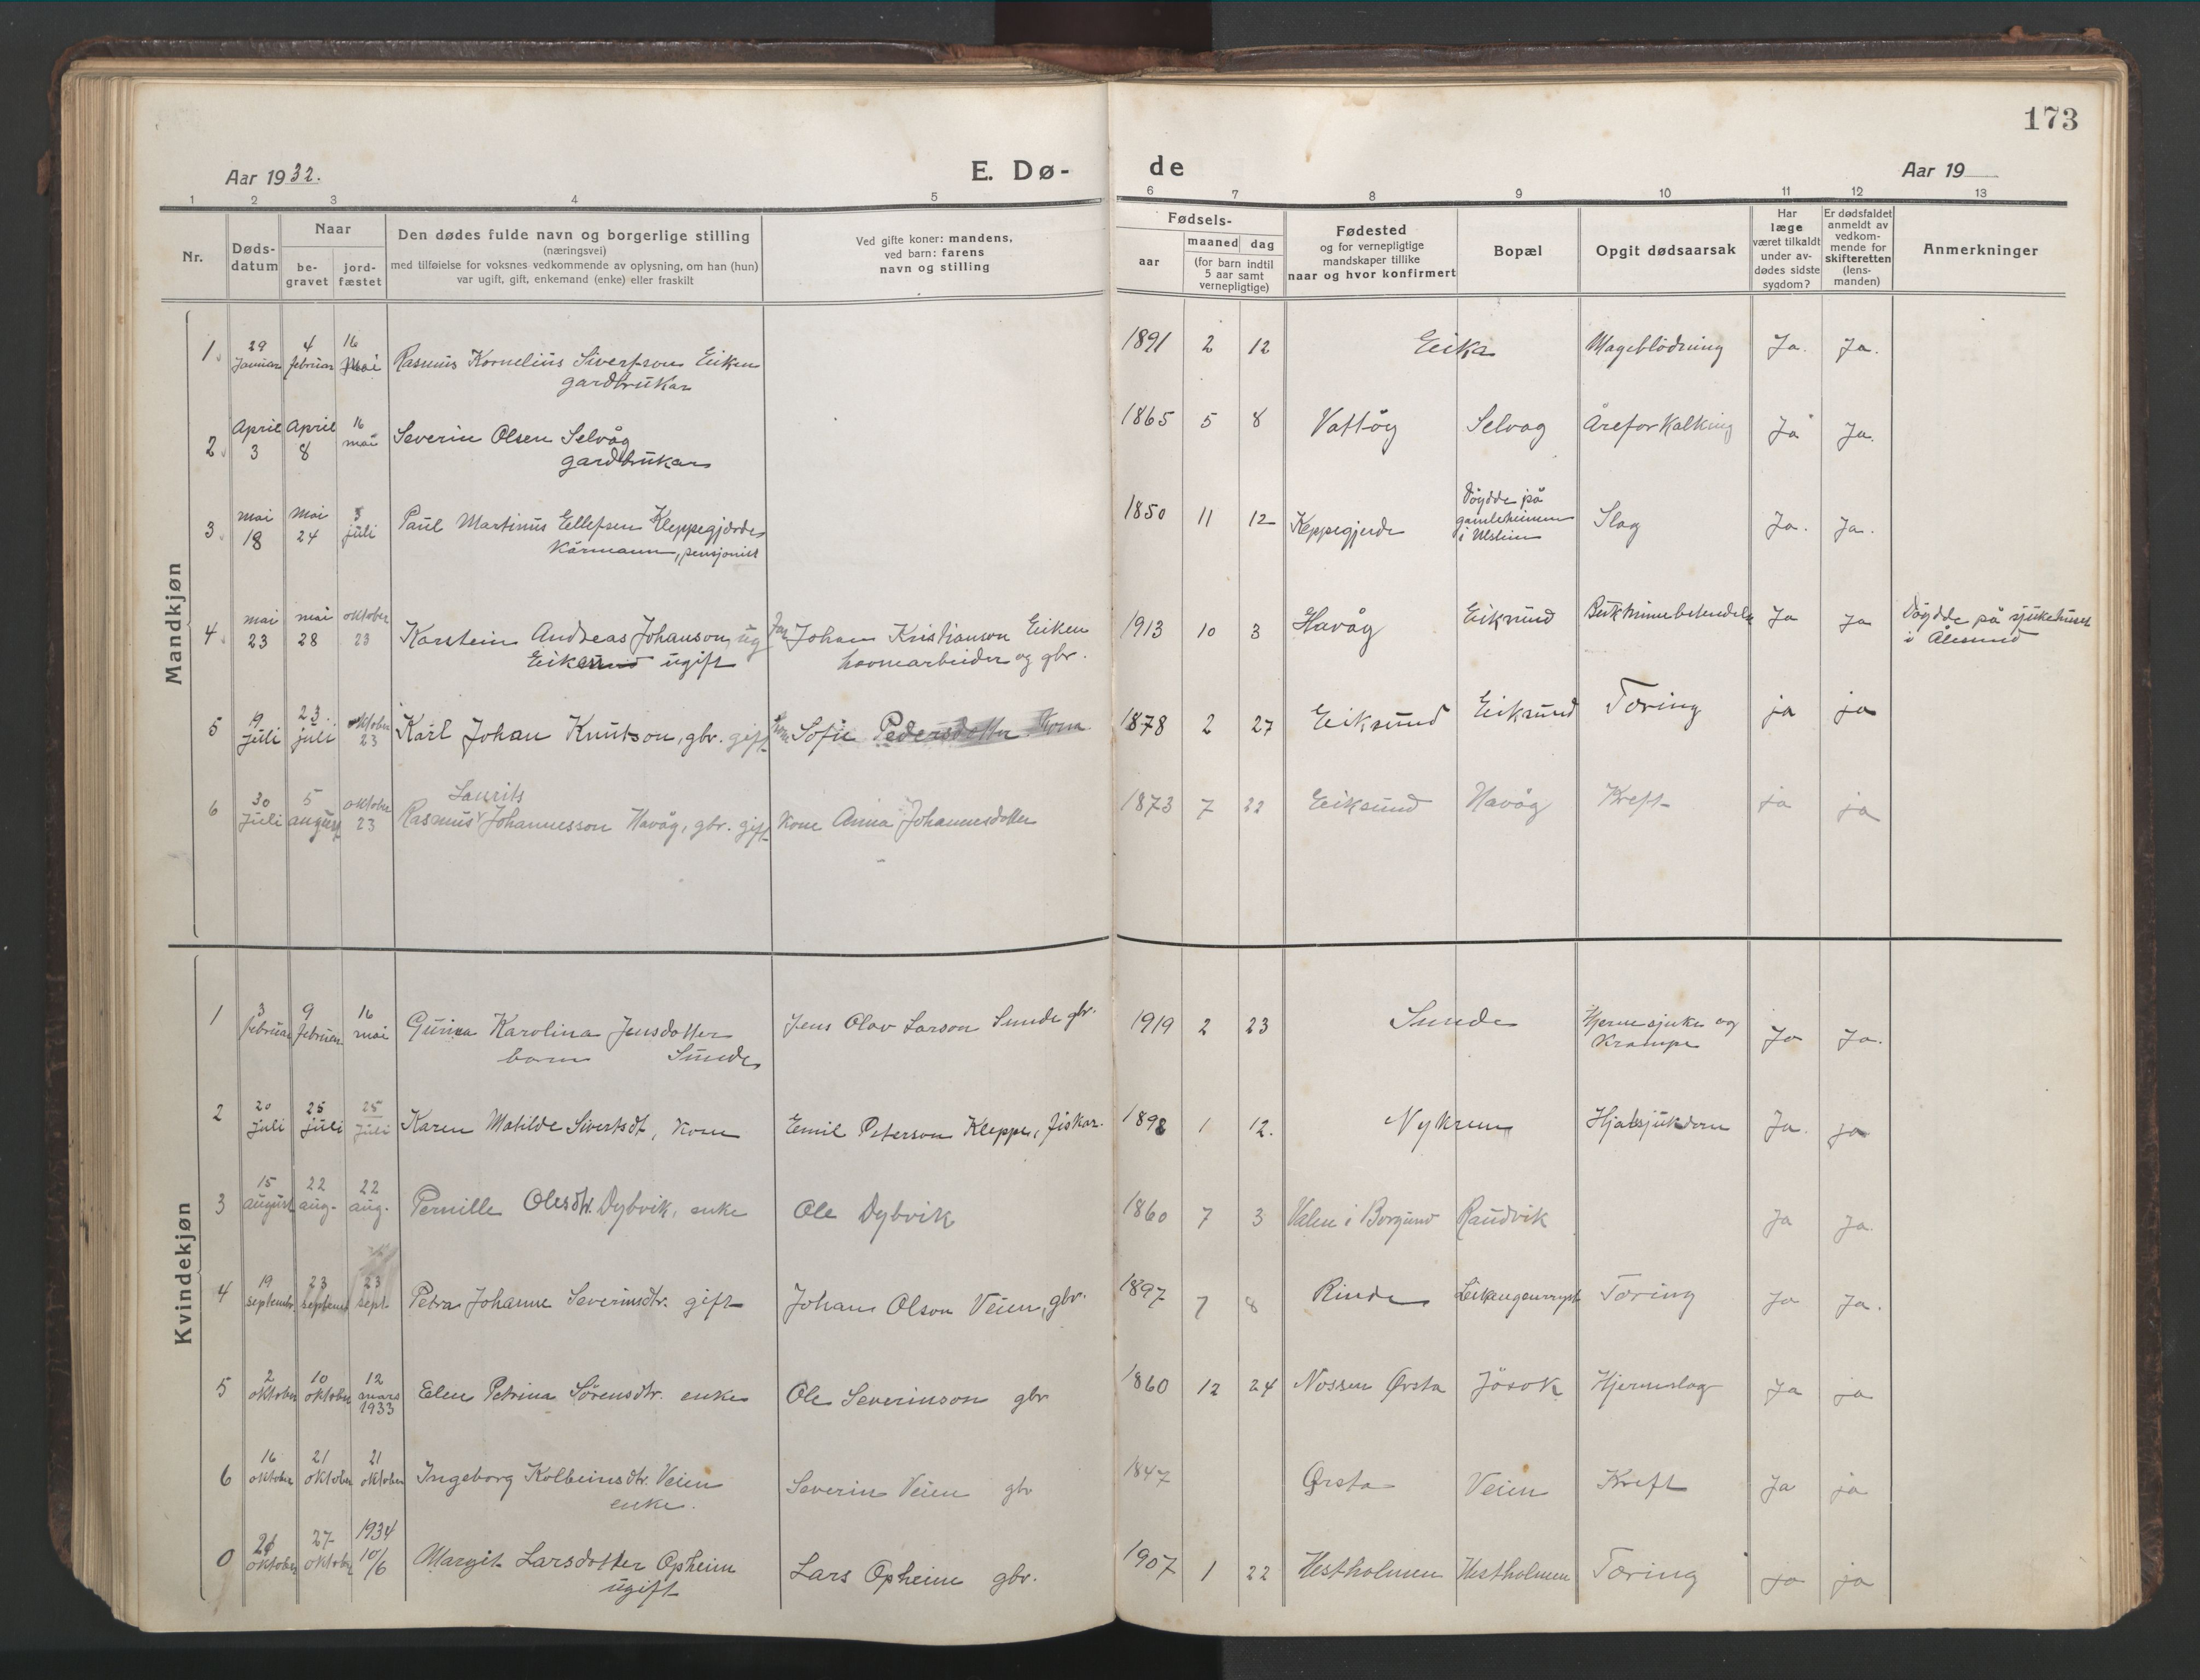 173
Aar 1932.
E. Dø-
de
Aar 19
1 2 3 4 5 6 7 8 9 10 11 12 13
Nr.
Døds-
datum
Naar
be-
gravet
jord-
fæstet
Den dødes fulde navn og borgerlige stilling
(næringsvei)
med tilføielse for voksnes vedkommende av oplysning, om han (hun)
var ugift, gift, enkemand (enke) eller fraskilt
Ved gifte koner: mandens,
ved barn: farens
navn og stilling
Fødsels-
aar
maaned dag
(for barn indtil
5 aar samt
vernepligtige)
Fødested
og for vernepligtige
mandskaper tillike
naar og hvor konfirmert
Bopæl
Opgit dødsaarsak
Har
læge
været tilkaldt
under av-
dødes sidste
sygdom?
Er dødsfaldet
anmeldt av
vedkom-
mende for
skifteretten
(lens-
manden)
Anmerkninger
Mandkjøn
1. 29 Januar 4 februar 16 mai Rasmus Kornelius Sivertson Eiken
gardbrukar
1891 2 12 Eika Mageblödning Ja. Ja.
2. April 3 April 8 16 mai Severin Olsen Selvåg
gardbrukar
1865 5 8 Vattöy Selvag Åreforkalking Ja Ja.
3. mai 18 mai 24 juli Paul Martinus Ellefsen Kleppegjerde
Kårmann, pensjonist
1850 11 12 Keppegjerde Döydde på
gamleheimen
i Ulstein
Slag Ja. Ja.
4. mai 23 mai 28 oktober 23 Karstein Andreas Johanson, ug
Eiksund ugift
Far Johan Kristianson Eiken
havnearbeider og gbr.
1913 10 3 Havåg Eiksund Ja Ja Döydde på sjukehuset
i Ålesund
5 19 juli 23. juli oktober 23 Karl Johan Knutson, gbr. gift Kone Sofie Pedersdotter Kona
1878 2 27 Eiksund Eiksund Tæring ja ja
Laurits
6 30 Juli 5 august oktober 23 Rasmus Johannesson Havåg, gbr. gift Kone Anna Johannesdotter
1873 7 22 Eiksund Havåg Kreft ja ja
Kvindekjøn
1 3 februar 9 februar 16 mai Gurina Karolina Jensdotter
barn Sunde
Jens Olav Larson Sunde gbr.
1919 2 23 Sunde Hjernesjuke og
Krampe
Ja Ja.
2 20 juli 25 juli 25 juli Karen Matilde Sivertsdt, Kone Emil Peterson Kleppe, fiskar.
1898 1 12. Nykrem Hjatesjukdom Ja. ja
3 15 august 22 aug. 22 aug. Pernille Olesdtr. Dybvik, enke Ole Dybvik
1860 7 3 Valen i Borgund Raudvik Ja Ja.
4 19 septembr. 23 september 23 sept. Petra Johanne Severinsdtr. gift Johan Olson Veien, gbr.
1897 7 8 Rinde Tæring Ja Ja.
5 2 oktober 10 oktober 12 mars 1933 Elen Petrina Sörensdtr. enke Ole Severinson gbr
1860 12 24 Nossen Ørsta Jösok Hjerneslag Ja ja
6 16 oktober 21 oktober 21 oktober Ingeborg Kolbeinsdtr. Veien
enke.
Severin Veien gbr
1847 Ørsta Veien Kreft Ja ja
0 21 oktober 27 oktober 1934 10/6 Margit Larsdotter Opheim
ugift
Lars Opheim gbr.
1907 1 22 Hestholmen Hestholmen Tæring ja ja